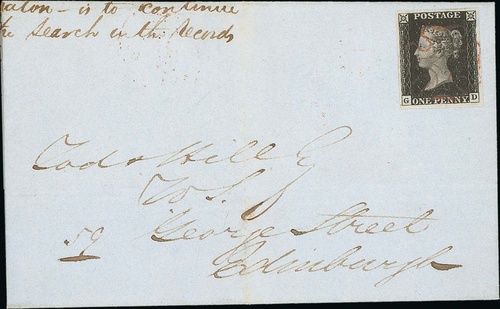 is to continue
the Search in the Records
POSTAGE
G D
ONE PENNY
Tods & Hill
W.S.
George Street
59
Edinburgh